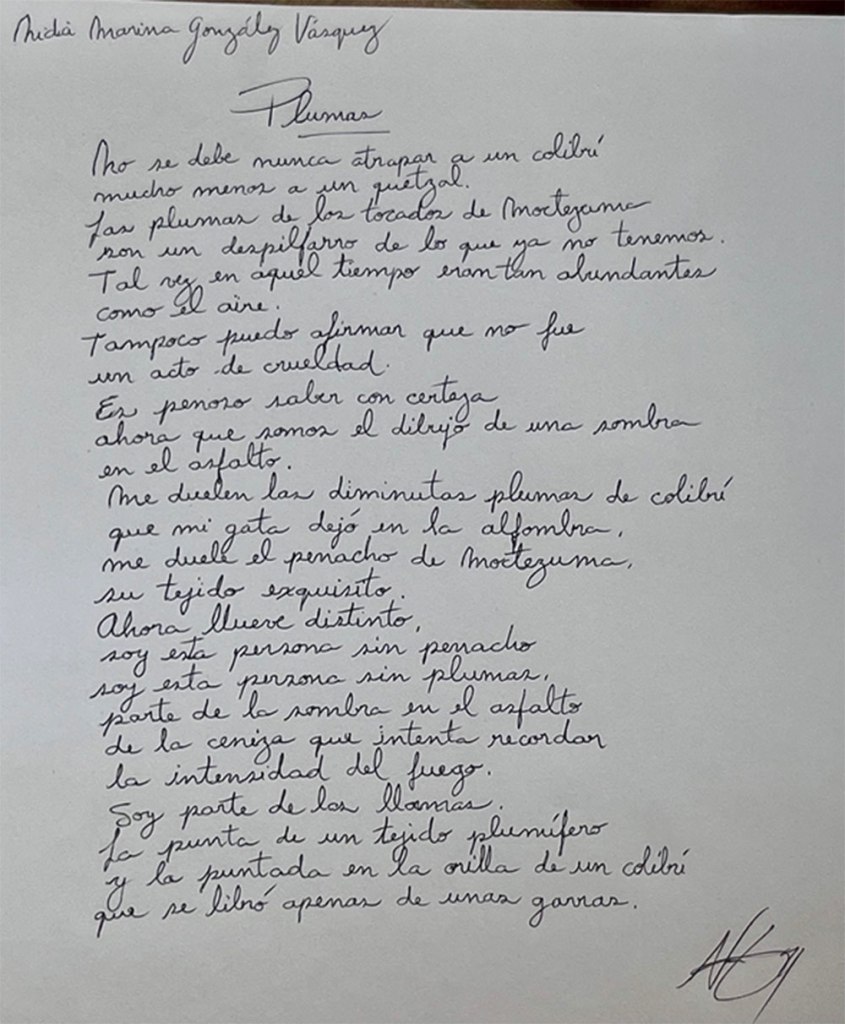 Nidia Marina González Vásquez
Plumas
No se debe nunca atrapar a un colibrí
mucho menos a un quetzal.
Las plumas de los tocados de Moctezuma
son un despilfarro de lo que ya no tenemos.
Tal vez en aquel tiempo eran tan abundantes
como el aire.
Tampoco puedo afirmar que no fue
un acto de crueldad.
Es penoso saber con certeza
ahora que somos el dibujo de una sombra
en el asfalto.
Me duelen las diminutas plumas de colibrí
que mi gata dejó en la alfombra,
me duele el penacho de Moctezuma,
su tejido exquisito.
Ahora llueve distinto,
soy esta persona sin penacho
soy esta persona sin plumas,
parte de la sombra en el asfalto
de la ceniza que intenta recordar
la intensidad del fuego.
Soy parte de las llamas.
La punta de un tejido plumífero
y la puntada en la orilla de un colibrí
que se libró apenas de unas garras.